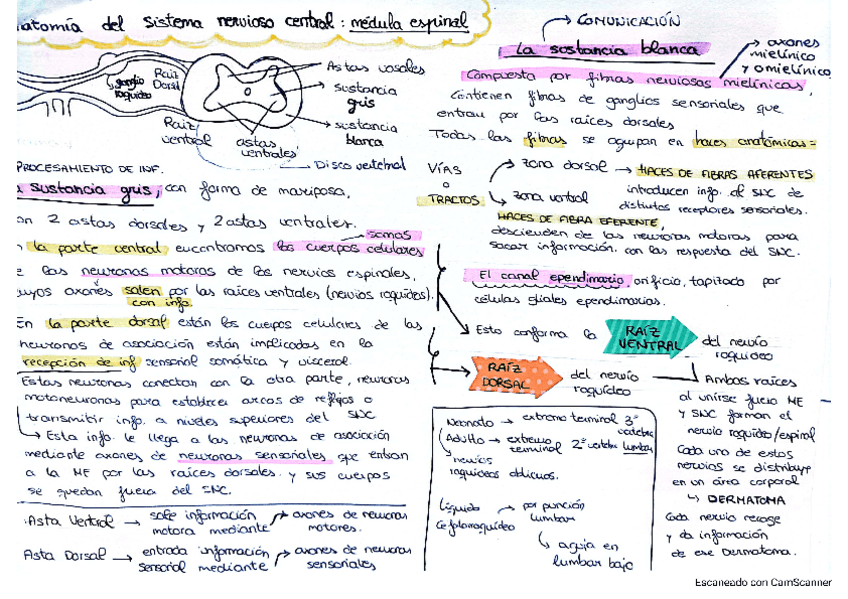 atomía del sistema nervioso central: médula espinal
ganglio raquídeo
Raíz Dorsal
Raíz ventral
astas ventrales
Astas
sustancia gris
sustancia blanca
Disco vertebral
PROCESAMIENTO DE INF.
sustancia gris, con forma de mariposa,
on 2 astas dorsales y 2 astas ventrales.
somas
la parte central encontramos los cuerpos celulares
e las neuronas motoras de los nervios espinales,
cuyos axones salen por las raíces ventrales (nervios raquídeos).
con info.
En la parte dorsal están los cuerpos celulares de las
neuronas de asociación están implicadas en la
recepción de inf sensorial somática y visceral.
Estas neuronas conectan con la otra parte, neuronas
motoneuronas para establecer arcos de reflejos o
transmitir info. a niveles superiores del SNC
→ Esta info. le llega a las neuronas de asociación
mediante axones de neuronas sensoriales que entran
a la ME por las raíces dorsales y sus cuerpos
se quedan fuera del SNC.
·Asta Ventral → sale información motora mediante → axones de neuronas motores.
Asta Dorsal → entrada información sensorial mediante → axones de neuronas sensoriales
→ COMUNICACIÓN
La sustancia blanca
→ axones mielínico y amielínico
Compuesta por fibras nerviosas mielínicas,
contienen fibras de ganglios sensoriales que
entran por las raíces dorsales
Todas las fibras se agrupan en haces anatómicas =
VÍAS o TRACTOS
→ zona dorsal → HACES DE FIBRAS AFERENTES
introducen info. al SNC de
distintos receptores sensoriales.
→ zona ventral
HACES DE FIBRA EFERENTE,
descienden de las neuronas motoras para
sacar información. con las respuesta del SNC.
El canal ependimario, orificio, tapizado por
células gliales ependimarias.
Esto conforma la RAÍZ VENTRAL del nervio raquídeo
RAÍZ DORSAL del nervio raquídeo
→ Ambas raíces
al unirse fuera ME
y SNC forman el
nervio raquídeo/espinal
Cada uno de estos
nervios se distribuye
en un área corporal
→ DERMATOMA
Cada nervio recoge
y da información
de ese Dermatoma.
Neonato → extremo terminal 3ª vertebra
Adulto → extremo terminal 2ª vertebra lumbar
→ nervios
raquídeos oblicuos.
Líquido Cefalorraquídeo → por punción lumbar
→ aguja en
lumbar bajo
Escaneado con CamScanner